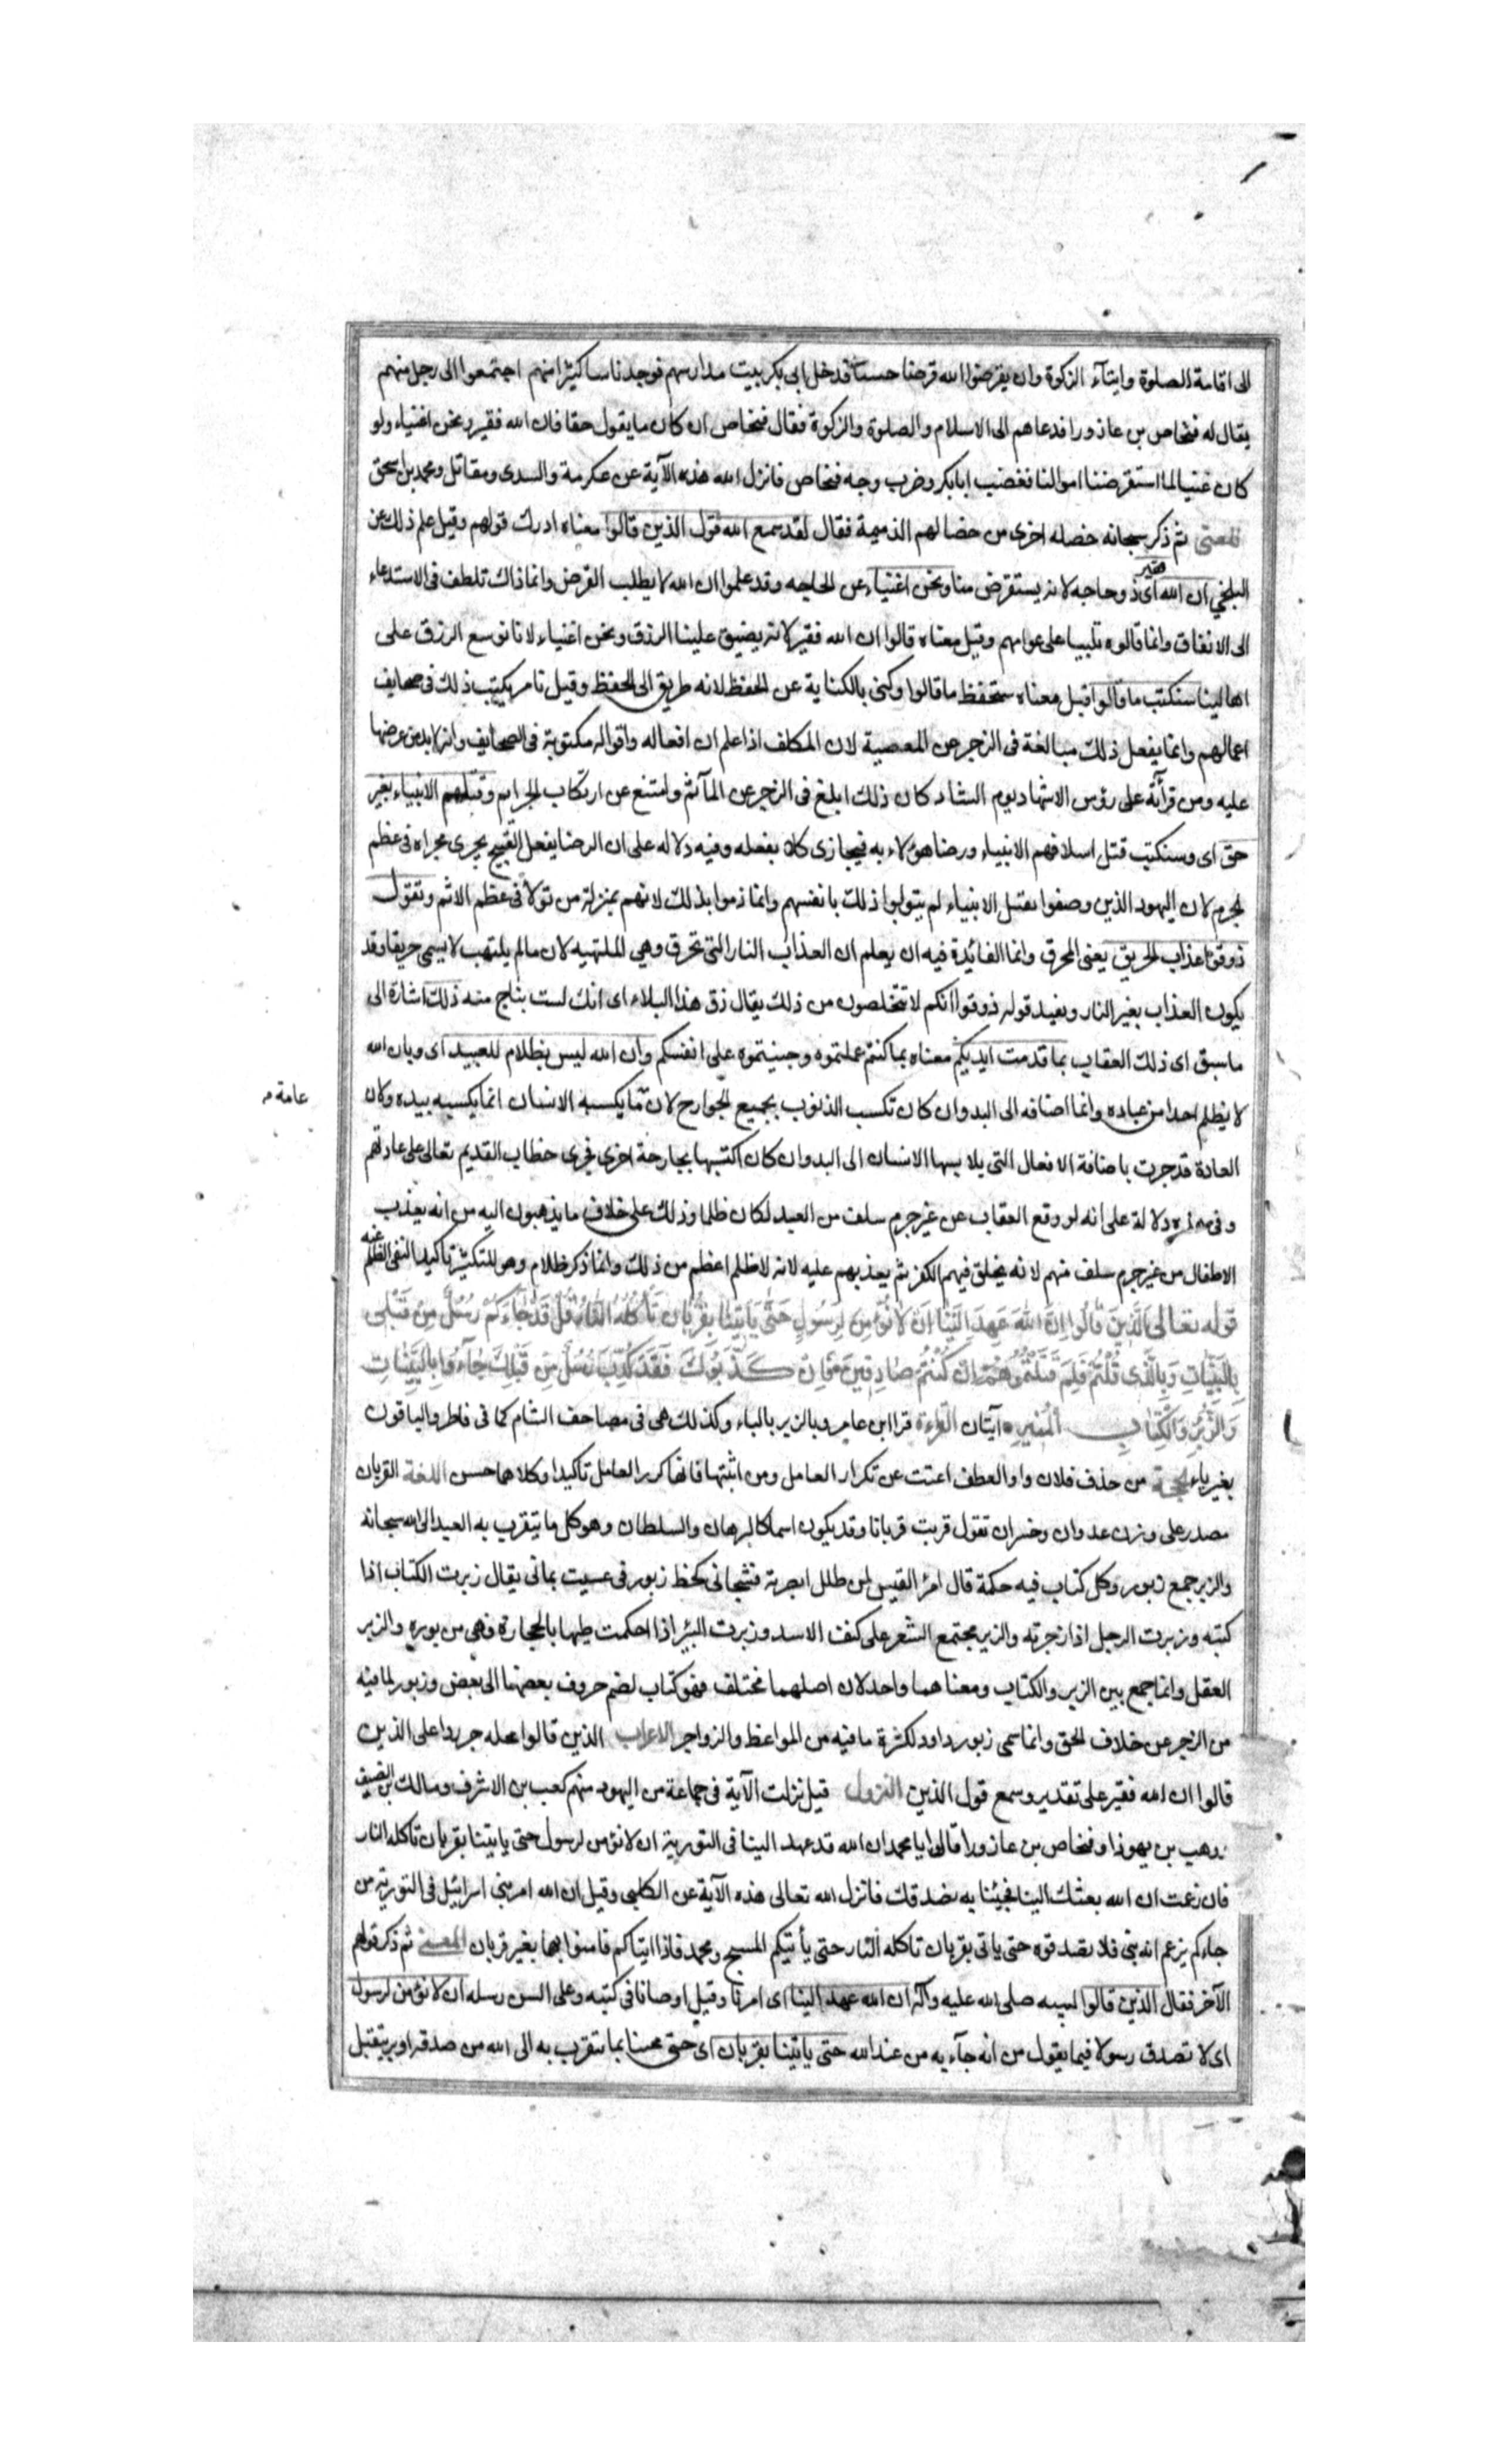 الى اقامة الصلوة وايتآء الزكوة وان يقرضوا الله قرضا حسنا فدخل ابى بكر بيت مدارسهم فوجد ناسا كثيرا منهم اجتمعوا الى رجل منهم
يقال له فنحاص بن عاذورا فدعاهم الى الاسلام والصلوة والزكوة فقال فنحاص ان كان ما يقول حقا فان الله فقير ونحن اغنياء ولو
كان غنيا لما استقرضنا اموالنا فغضب ابابكر وضرب وجه فنحاص فانزل الله هذه الآية عن عكرمة والسدى ومقاتل ومحمد بن اسحق
المعنى ثم ذكر سبحانه خصله اخرى من خصالهم الذميمة فقال لقد سمع الله قول الذين قالوا معناه ادرك قولهم وقيل علم ذلك عن
البلخي ان الله فقير اى ذو حاجه لانه يستقرض منا ونحن اغنياء عن الحاجه وقد علموا ان الله لا يطلب القرض وانما ذاك تلطف فى الاستدعاء
الى الانفاق وانما قالوه تلبيسا على عوامهم وقيل معناه قالوا ان الله فقير لانه يضيق علينا الرزق ونحن اغنياء لانا نوسع الرزق على
اهالينا سنكتب ما قالوا قيل معناه سنحفظ ما قالوا وكنى بالكتابة عن الحفظ لانه طريق الى الحفظ وقيل نامر بكتب ذلك فى صحايف
اعمالهم وانما يفعل ذلك مبالغة فى الزجر عن المعصية لان المكلف اذا علم ان افعاله واقواله مكتوبة فى الصحايف وانه لابد من عرضها
عليه ومن قرآئة على رؤس الاشهاد يوم التناد كان ذلك ابلغ فى الزجر عن المآثم وامتنع عن ارتكاب الجرايم وقتلهم الانبياء بغير
حق اى وسنكتب قتل اسلافهم الانبياء ورضا هؤلاء به فيجازى كلا بفعله وفيه دلاله على ان الرضا بفعل القبيح يجرى مجراه فى عظم
الجرم لان اليهود الذين وصفوا بقتل الانبياء لم يتولوا ذلك بانفسهم وانما ذموا بذلك لانهم بمنزلة من تولا فى عظم الاثم ونقول
ذوقوا عذاب الحريق يعنى المحرق وانما الفائدة فيه ان يعلم ان العذاب النار التى تحرق وهي الملتهبه لان ما لم يلتهب لا يسمى حريقا وقد
يكون العذاب بغير النار ويفيد قوله ذوقوا انكم لا تتخلصون من ذلك يقال ذق هذا البلاء اى انك لست بناج منه ذلك اشارة الى
ما سبق اى ذلك العقاب بما قدمت ايديكم معناه بما كنتم عملتموه وجنيتموه على انفسكم وان الله ليس بظلام للعبيد اى وبان الله
لا يظلم احدا من عباده وانما اضافه الى اليد وان كان تكسب الذنوب بجميع الجوارح لان ما يكسبه الانسان انما يكسبه بيده ولان
عامة م
العادة قد جرت باضافة الافعال التى يلابسها الانسان الى اليد وان كان اكتسبها بجارحة اخرى فجرى خطاب القديم تعالى على عادتهم
وفى هذه دلالة على انه لو وقع العقاب عن غير جرم سلف من العبد لكان ظلما وذلك على خلاف ما يذهبون اليه من انه يعذب
الاطفال من غير جرم سلف منهم لانه يخلق فيهم الكفر ثم يعذبهم عليه لانه لا ظلم اعظم من ذلك وانما ذكر ظلام وهو للتكثير تاكيدا لنفى الظلم عنه
قوله تعالى الَّذِينَ قَالُوا اِنَّ اللهَ عَهِدَ اِلَيْنَا اَنْ لَا نُؤْمِنَ لِرَسُولٍ حَتّٰى يَاْتِيَنَا بِقُرْبَانٍ تَاْكُلُهُ النَّارُ قُلْ قَدْ جَاءَكُمْ رُسُلٌ مِنْ قَبْلِى
بِالْبَيِّنَاتِ وَبِالَّذِى قُلْتُمْ فَلِمَ قَتَلْتُمُوهُمْ اِنْ كُنْتُمْ صَادِقِينَ فَاِنْ كَذَّبُوكَ فَقَدْ كُذِّبَ رُسُلٌ مِنْ قَبْلِكَ جَاءُوا بِالْبَيِّنَاتِ
وَالزُّبُرِ وَالْكِتَابِ الْمُنِيرِ آيتان القراءة قرا ابن عامر وبالزبر بالباء وكذلك هى فى مصاحف الشام كما فى فاطر والباقون
بغير باء الحجة من حذف فلان واو العطف اغنت عن تكرار العامل ومن اثبتها فانما كرر العامل تاكيدا وكلاهما حسن اللغة القربان
مصدر على وزن عدوان وخسران تقول قربت قربانا وقد يكون اسما كالبرهان والسلطان وهو كل ما يتقرب به العبد الى الله سبحانه
والزبر جمع زبور وكل كتاب فيه حكمة قال امرؤ القيس لمن طلل ابصرته فشجانى كخط زبور فى عسيب يمانى يقال زبرت الكتاب اذا
كتبته وزبرت الرجل اذا زجرته والزبر مجتمع الشعر على كتف الاسد وزبرت البئر اذا احكمت طيها بالحجارة فهى مزبوره والزبر
العقل وانما جمع بين الزبر والكتاب ومعناهما واحد لان اصلهما مختلف فهو كتاب لضم حروف بعضها الى بعض وزبور لما فيه
من الزجر عن خلاف الحق وانما سمى زبور داود لكثرة ما فيه من المواعظ والزواجر الاعراب الذين قالوا محله جر ردا على الذين
قالوا ان الله فقير على تقدير وسمع قول الذين النزول قيل نزلت الآية فى جماعة من اليهود منهم كعب بن الاشرف ومالك بن الضيف
ووهب بن يهوذا وفنحاص بن عازورا قالوا يا محمد ان الله قد عهد الينا فى التورية ان لا نؤمن لرسول حتى ياتينا بقربان تاكله النار
فان زعمت ان الله بعثك الينا فجئنا به نصدقك فانزل الله تعالى هذه الآية عن الكلبى وقيل ان الله امر بنى اسرائيل فى التورية من
جاءكم يزعم انه نبى فلا تصدقوه حتى ياتى بقربان تاكله النار حتى يأتيكم المسيح ومحمد فاذا اتياكم فامنوا بهما بغير قربان المعنى ثم ذكر قولهم
الآخر فقال الذين قالوا لنبيه صلى الله عليه وآله ان الله عهد الينا اى امرنا وقيل اوصانا فى كتبه وعلى السن رسله ان لا نؤمن لرسول
اى لا نصدق رسولا فيما يقول من انه جآء به من عند الله حتى ياتينا بقربان اى حتى يجيئنا بما يتقرب به الى الله من صدقه او بر يتقبل